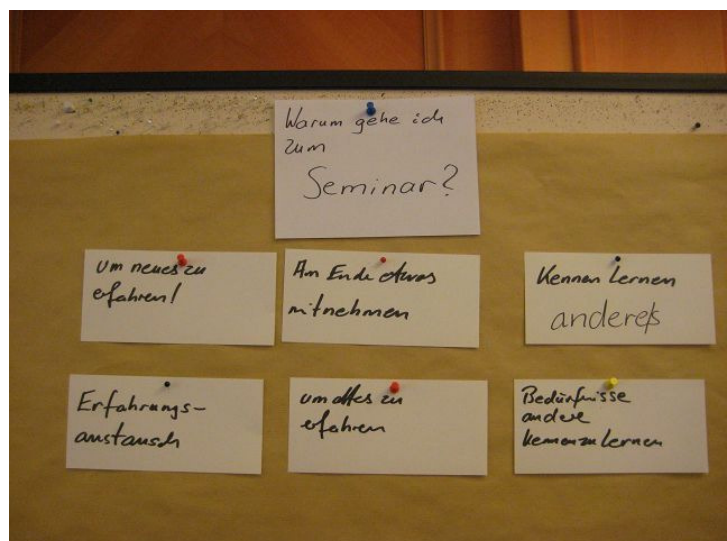 Warum gehe ich
zum
Seminar?
um neues zu
erfahren!
Am Ende etwas
mitnehmen
Kennen lernen
andere/s
Erfahrungs-
austausch
um altes zu
erfahren
Bedürfnisse
andere
kennenzulernen